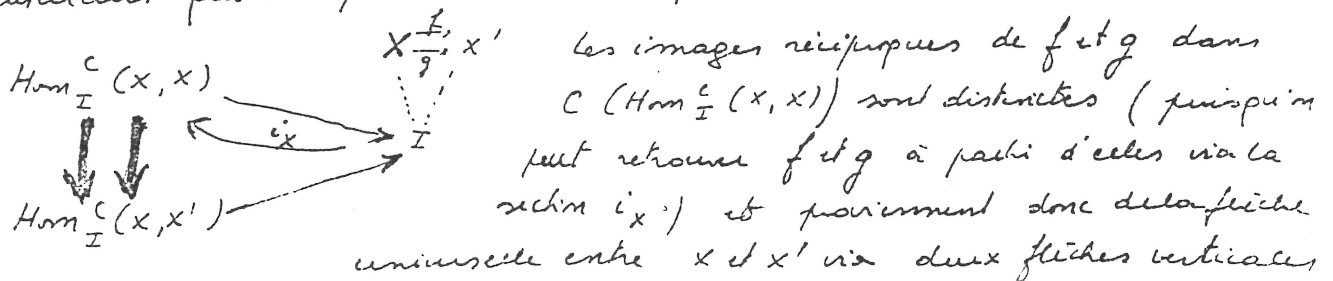 Hom_I^C (X, X)
i_X
Hom_I^C (X, X')
X f, g X'
I
Les images réciproques de f et g dans
C (Hom_I^C (X, X)) sont distinctes (puisqu'on
peut retrouver f et g à partir d'elles via la
section i_X) et proviennent donc de la flèche
universelle entre X et X' via deux flèches verticales